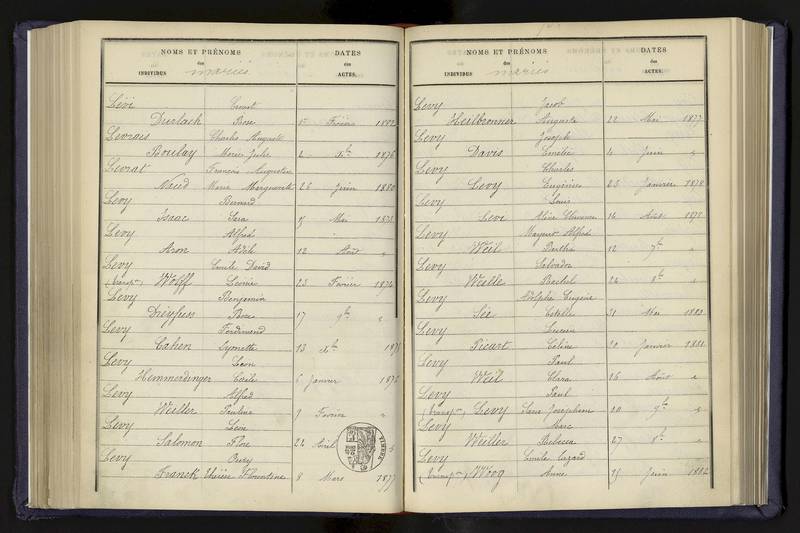 NOMS ET PRÉNOMS
DATES
des
INDIVIDUS
mariés
des
ACTES.
Lévi Ernest
Durlach Rose 5 Février 1882
Levrais Charles Auguste
Boulay Marie Julie 2 1876
Levrat François Augustin
Naud Marie Marguerite 26 Juin 1880
Levy Bernard
Isaac Sara 5 Mai 1873
Levy Alfred
Aron Adèle 12 Août "
Levy Emile David
(transp.on) Wolff Léonie 23 Février 1874
Levy Benjamin
Dreyfuss Rose 17 9bre "
Levy Ferdinand
Cohen 13 Xbre 1875
Levy Léon
Hemmerdinger Cécile 6 Janvier 1876
Levy Alfred
Weiller Pauline 9 Février "
Levy Léon
Salomon Flore 22 Avril "
Levy Oury
Franck Thérèse Florentine 8 Mars 1877
NOMS ET PRÉNOMS
DATES
des
INDIVIDUS
mariés
des
ACTES.
Levy Jacob
Heilbronner Auguste 22 Mai 1877
Levy Joseph
Davis Emélie 4 Juin "
Levy Charles
Levy Eugénie 23 Janvier 1878
Levy Louis
Levi Aline 14 Août 1878
Levy Mayeur Alfred
Weil Berthe 12 7bre "
Levy Salvador
Weille Rachel 24 8bre "
Levy Adolphe Eugène
Sée Estelle 31 Mai 1880
Levy Lucien
Picart Céline 20 Janvier 1881
Levy Paul
Weil Clara 16 Août "
Levy Paul
(transp.on) Levy Sara Joséphine 20 9bre "
Levy Marc
Weiller Rebecca 27 Xbre "
Levy Emile Lazard
(transp.on) Woog Anne 15 Juin 1882